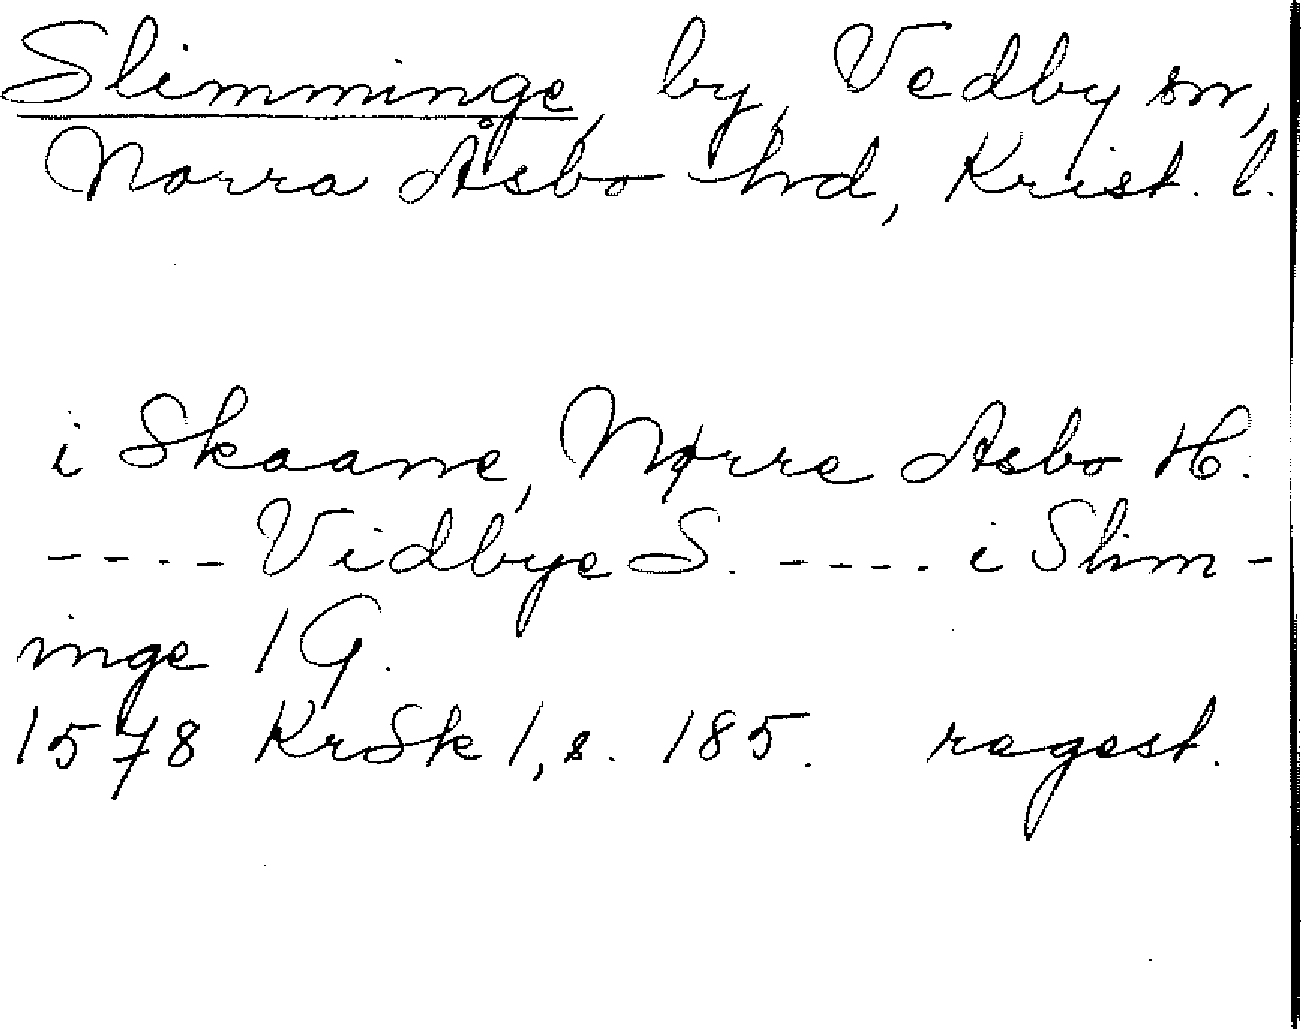 Slimminge, by, Vedby sn,
Norra Åsbo hd, Krist. l.
i Skaane, Nørre Asbo H.
---- Vidbye S. ----- i Slim-
inge 1 G.
1578 KrSk 1, s. 185. regest.